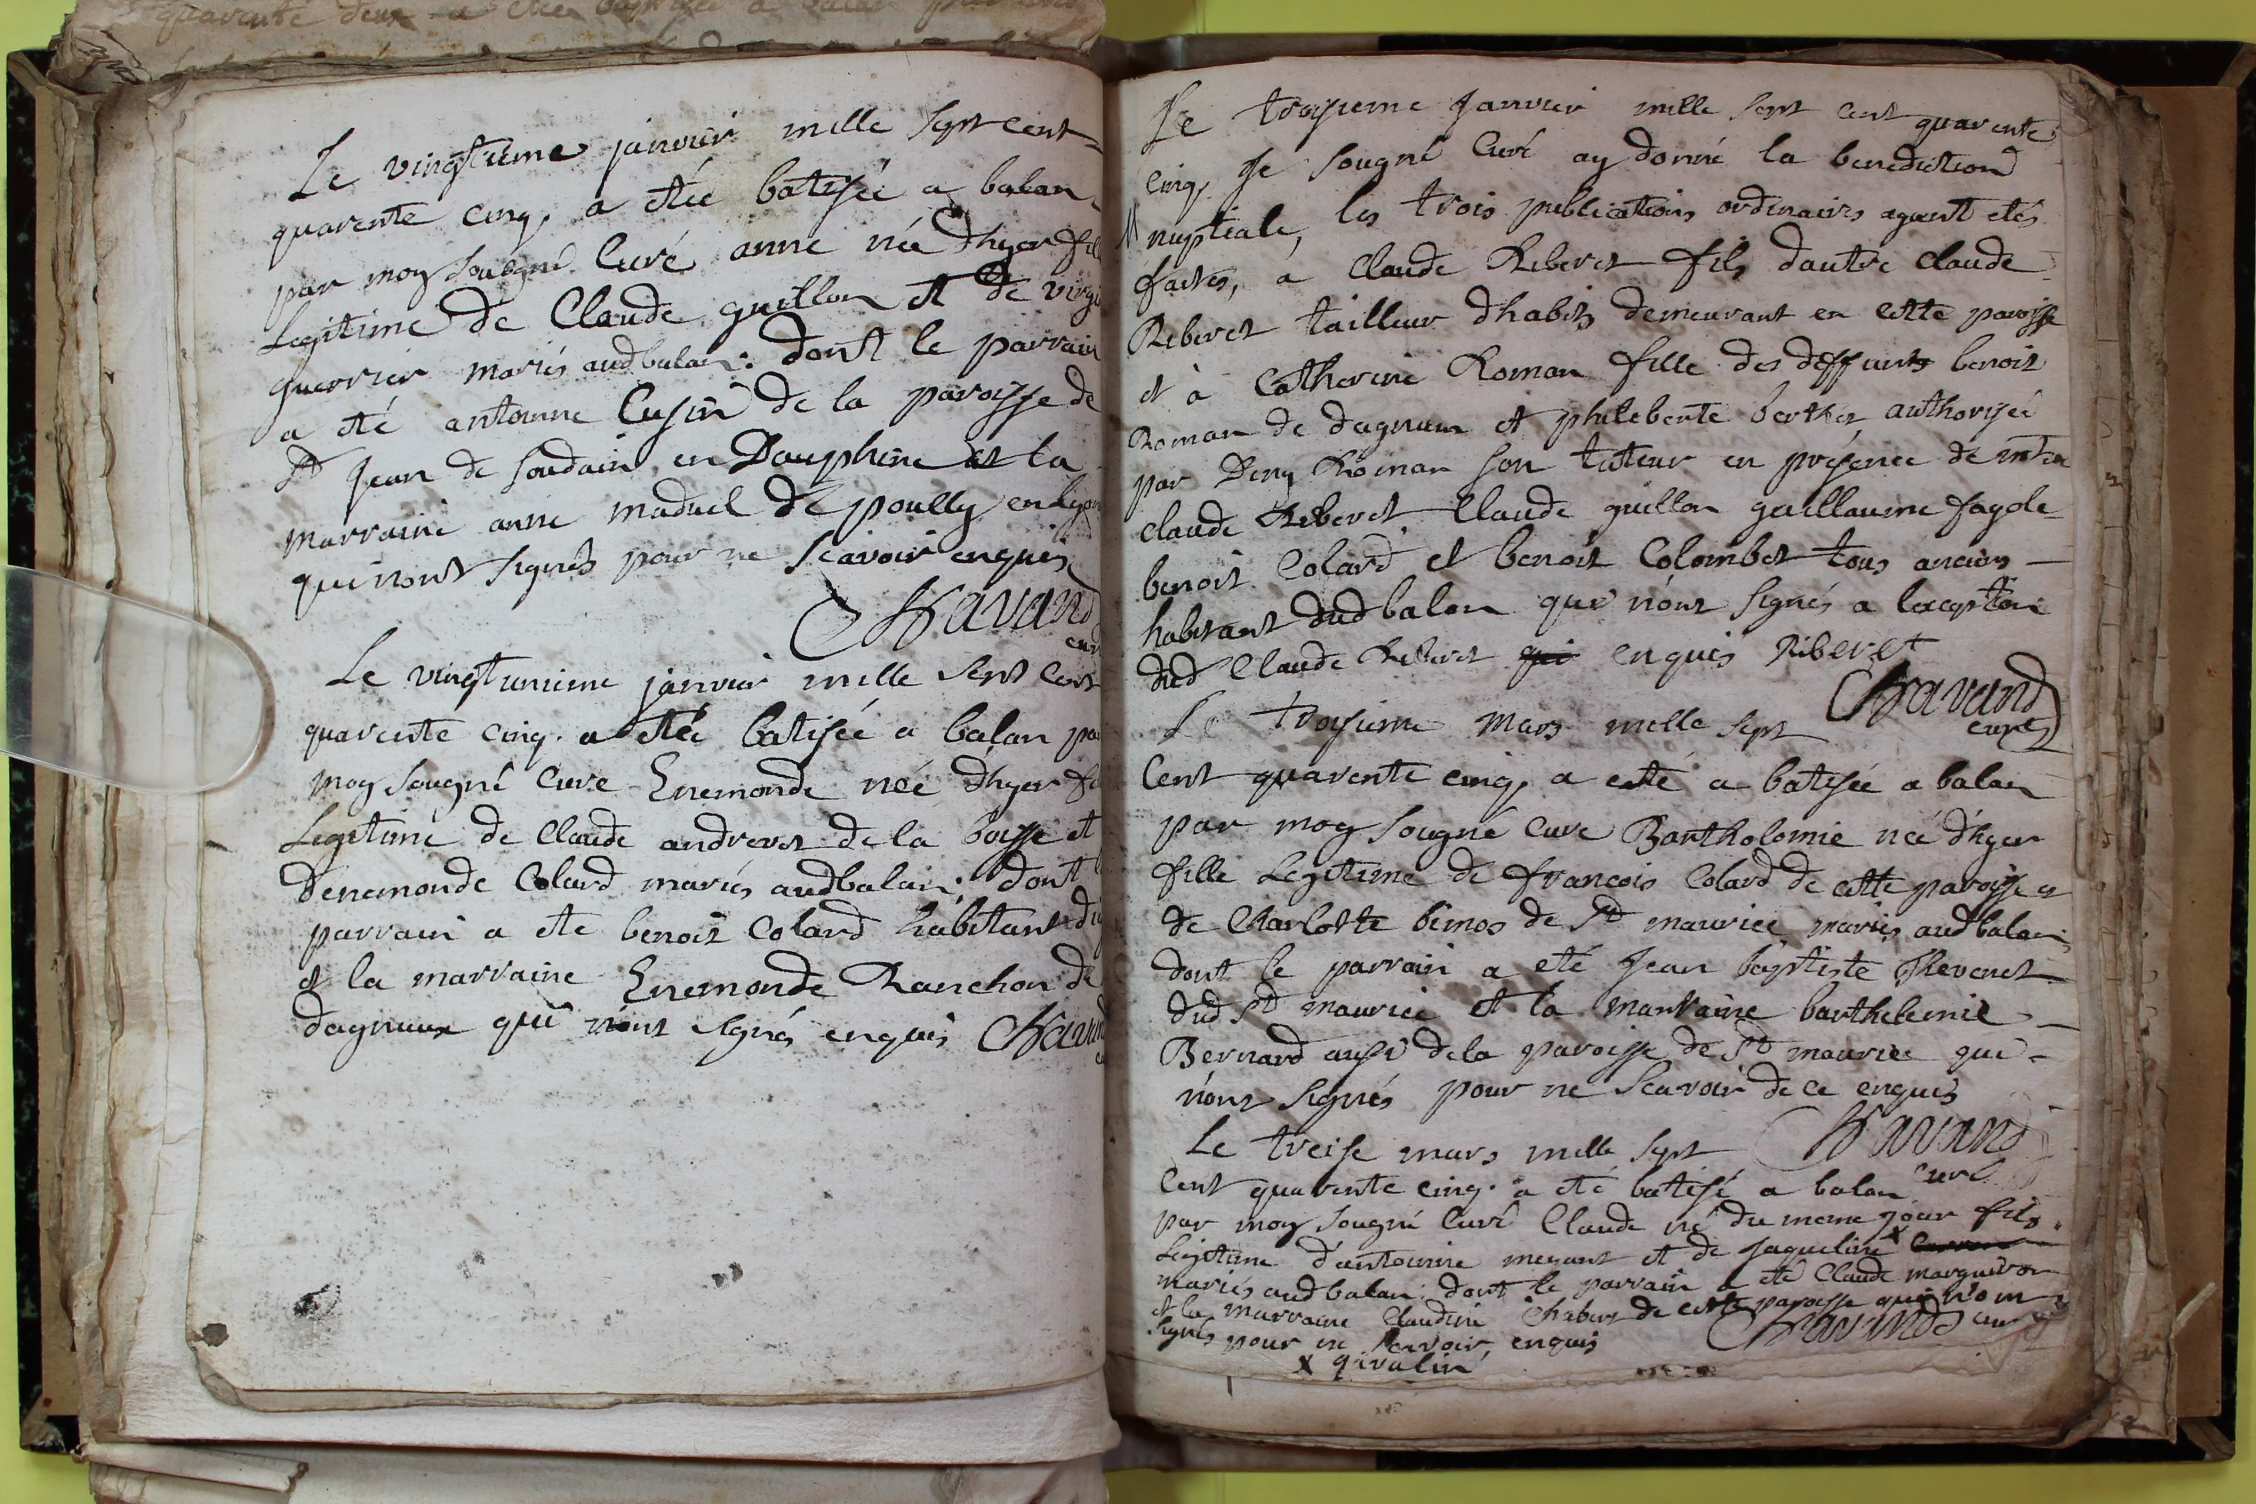 Le vingtieme janvier mille sept cent
quarente cinq, a etée batisée a balan
par moy sougné Curé anne née dhyer fille
Legitime de Claude guillon et de virgi
guerrier mariés audbalan: dont le parrain
a été antoinne Cusin de la paroisse de
St Jean de soudain en Dauphiné et la
marraine anne maduel de poully en lyon
qui n'ont signés pour ne scavoir enquis
Chavand
curé
Le vingtunieme janvier mille sept cent
quarente cinq. a etée batisée a balan par
moy sougné Curé Enemonde née dhyer fi
Legitime de Claude andrevet de la boisse et
denemonde Colard mariés audbalan. dont le
parrain a ete benoit Colard habitant du
et la marraine Enemonde Ranchon de
dagnieux qui n'ont signés enquis Chavand
Le troysieme Janvier mille sept cent quarente
cinq, Je sougné Curé ay donné la benediction
M nuptiale, les trois publications ordinaires ayant etés
faites, à Claude Riberet fils dautre claude
Riberet tailleur dhabits demeurant en cette paroisse
et à Catherine Roman fille des deffunts benoit
Roman de dagnieu et philiberte berthet authorisée
par Deny Roman son tuteur en présence de
claude Riberet, Claude guillon guillaume fagole
benoit Colard et benoit Colombet tous anciens
habitant dudbalan qui n'ont signés a lexception
dud Claude Riberet qui enquis Riberet
Chavand
curé
Le troysieme Mars mille sept
Cent quarente cinq, a esté a batisée a balan
par moy sougné Curé Bartholomie née d'hyer
fille Legitime de françois Colard de cette paroisse et
de Charlotte bimos de St maurice mariés audbalan,
dont le parrain a eté Jean baptiste Thevenet
dud St maurice et la marraine barthelemie
Bernard aussi dela paroisse de St maurice qui
n'ont signés pour ne scavoir de ce enquis
Chavand
curé
Le treise mars mille sept
Cent quarente cinq. a eté batisé a balan
par moy sougné Curé Claude né du meme jour fils
Legitime d'antoinne meyant et de Jaqueline x
mariés audbalan. dont le parrain a eté Claude marguiron
et la marraine Claudine Chabert de cette paroisse qui n'ont
signés pour ne scavoir, enquis Chavand curé
x givalin